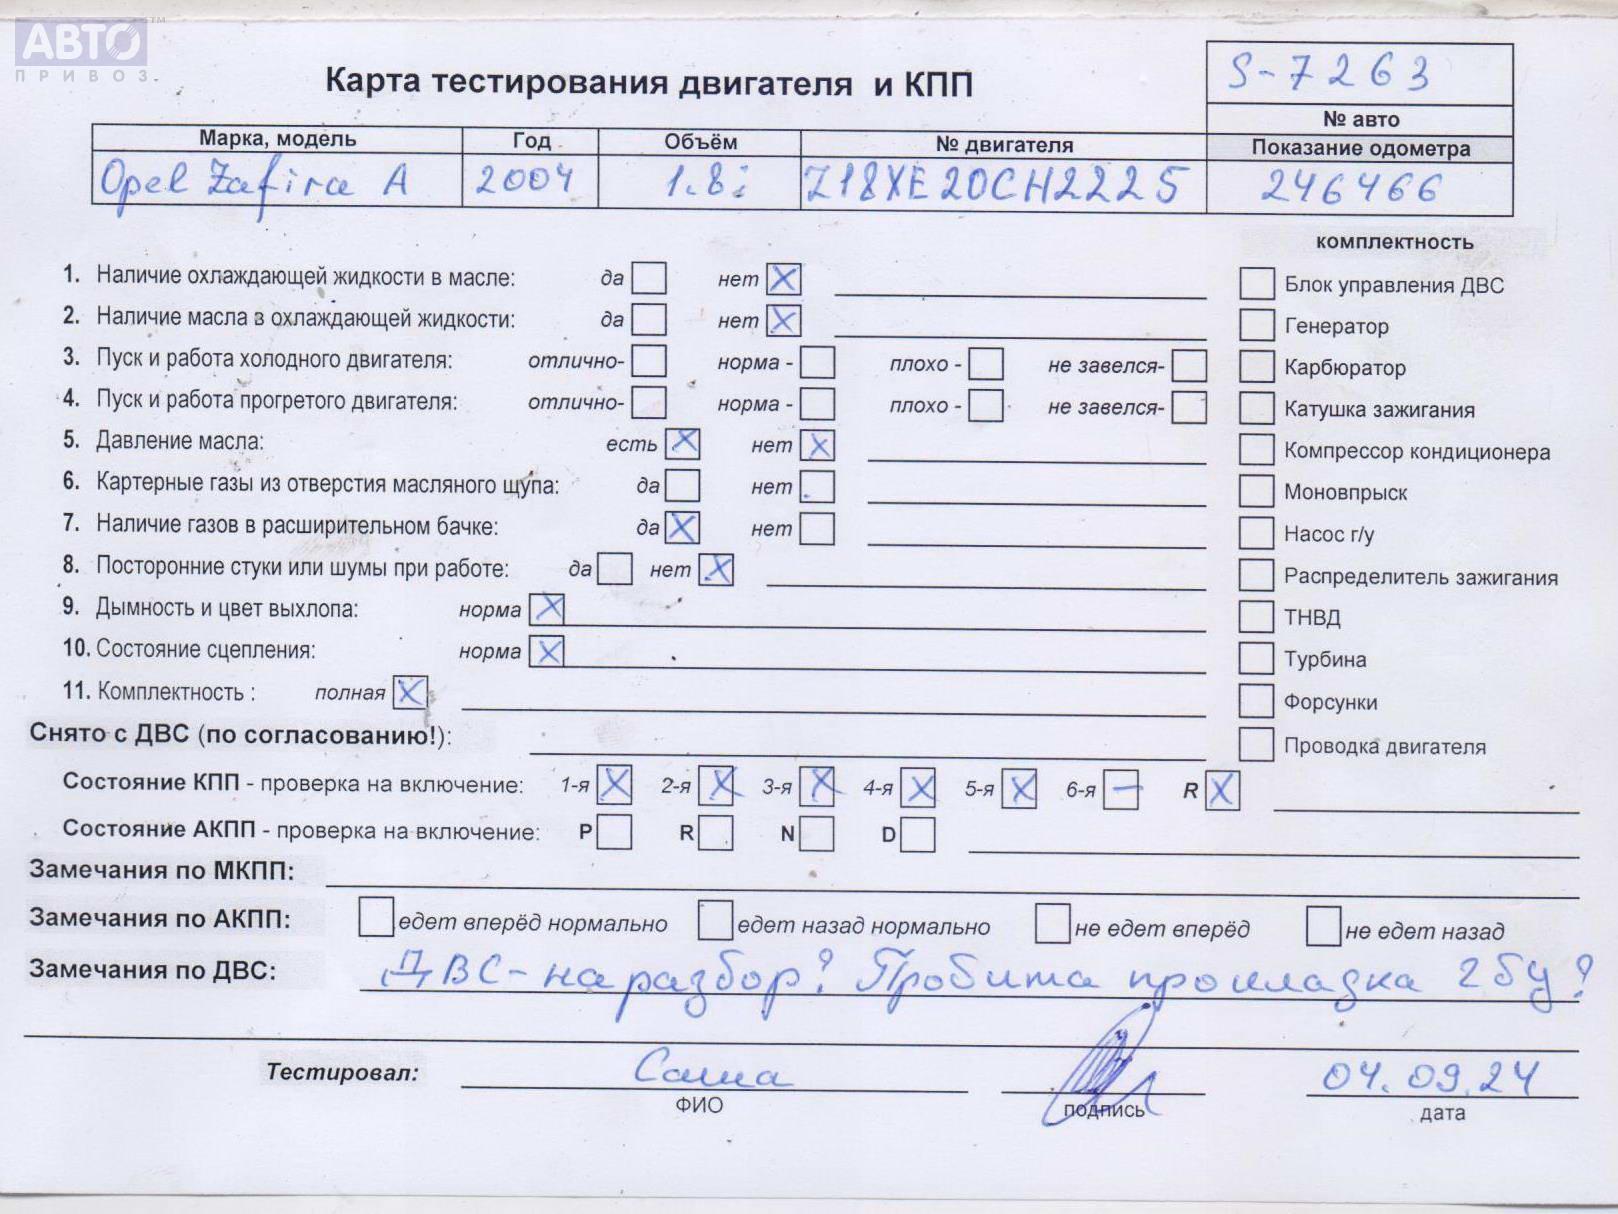 АВТО™
ПРИВОЗ
Карта тестирования двигателя и КПП
S-7263
№ авто
Марка, модель Год Объём № двигателя Показание одометра
Opel Zafira A 2004 1.8i Z18XE20CH2225 246466
комплектность
1. Наличие охлаждающей жидкости в масле: да нет X
Блок управления ДВС
2. Наличие масла в охлаждающей жидкости: да нет X
Генератор
3. Пуск и работа холодного двигателя: отлично- норма - плохо - не завелся-
Карбюратор
4. Пуск и работа прогретого двигателя: отлично- норма - плохо - не завелся-
Катушка зажигания
5. Давление масла: есть X нет X
Компрессор кондиционера
6. Картерные газы из отверстия масляного щупа: да нет
Моновпрыск
7. Наличие газов в расширительном бачке: да X нет
Насос г/у
8. Посторонние стуки или шумы при работе: да нет X
Распределитель зажигания
9. Дымность и цвет выхлопа: норма X
ТНВД
10. Состояние сцепления: норма X
Турбина
11. Комплектность : полная X
Форсунки
Снято с ДВС (по согласованию!):
Проводка двигателя
Состояние КПП - проверка на включение: 1-я X 2-я X 3-я X 4-я X 5-я X 6-я — R X
Состояние АКПП - проверка на включение: P R N D
Замечания по МКПП:
Замечания по АКПП: едет вперёд нормально едет назад нормально не едет вперёд не едет назад
Замечания по ДВС: ДВС - на разбор? Пробита прокладка гбу?
Тестировал: Саша 04.09.24
ФИО подпись дата